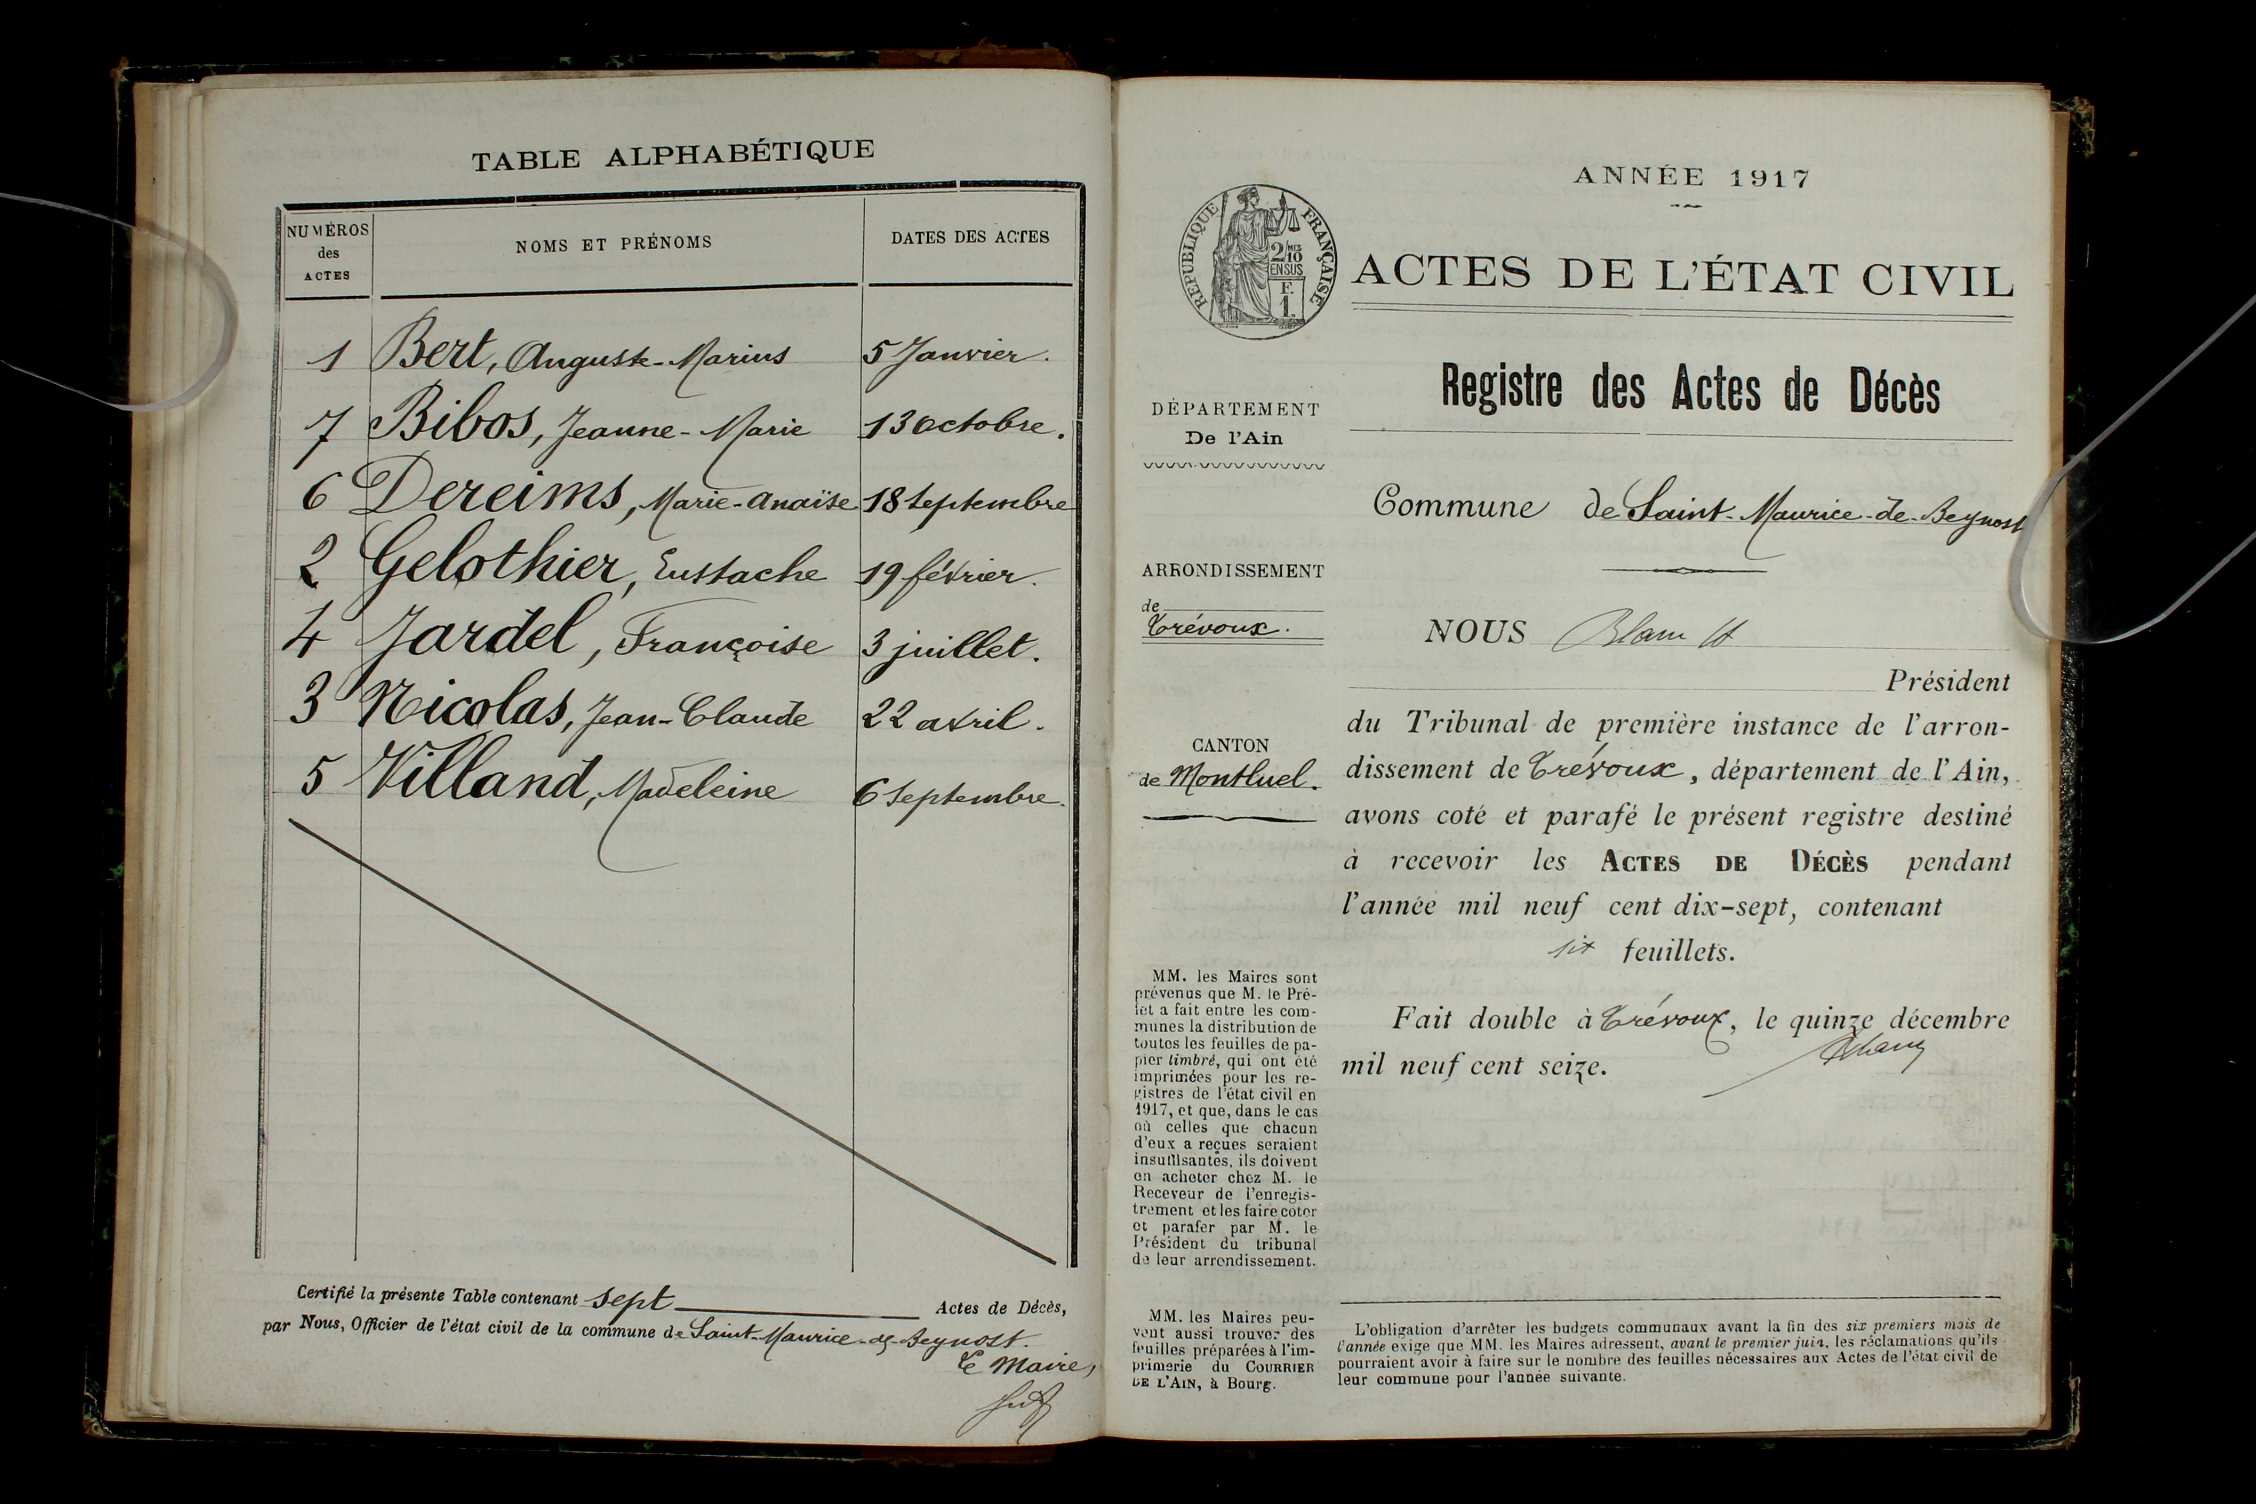 TABLE ALPHABÉTIQUE
NUMÉROS
des
ACTES
NOMS ET PRÉNOMS
DATES DES ACTES
1 Bert, Auguste-Marius 5 Janvier.
7 Bibos, Jeanne-Marie 13 octobre.
6 Dereims, Marie-Anaïse 18 Septembre
2 Gelothier, Eustache 19 février.
4 Jardel, Françoise 3 juillet.
3 Nicolas, Jean-Claude 22 avril.
5 Villand, Madeleine 6 Septembre.
Certifié la présente Table contenant sept Actes de Décès,
par Nous, Officier de l'état civil de la commune de Saint-Maurice-de-Beynost.
Le Maire,
ANNÉE 1917
RÉPUBLIQUE FRANÇAISE
2/10
EN SUS
F.
1.
ACTES DE L'ÉTAT CIVIL
Registre des Actes de Décès
DÉPARTEMENT
De l'Ain
Commune de Saint-Maurice-de-Beynost
ARRONDISSEMENT
de
Trévoux.
CANTON
de Montluel.
NOUS
Président
du Tribunal de première instance de l'arron-
dissement de Trévoux, département de l'Ain,
avons coté et parafé le présent registre destiné
à recevoir les ACTES DE DÉCÈS pendant
l'année mil neuf cent dix-sept, contenant
six feuillets.
Fait double à Trévoux, le quinze décembre
mil neuf cent seize.
MM. les Maires sont
prévenus que M. le Pré-
fet a fait entre les com-
munes la distribution de
toutes les feuilles de pa-
pier timbré, qui ont été
imprimées pour les re-
gistres de l'état civil en
1917, et que, dans le cas
où celles que chacun
d'eux a reçues seraient
insuffisantes, ils doivent
en acheter chez M. le
Receveur de l'enregis-
trement et les faire coter
et parafer par M. le
Président du tribunal
de leur arrondissement.
MM. les Maires peu-
vent aussi trouver des
feuilles préparées à l'im-
primerie du COURRIER
DE L'AIN, à Bourg.
L'obligation d'arrêter les budgets communaux avant la fin des six premiers mois de
l'année exige que MM. les Maires adressent, avant le premier juin, les réclamations qu'ils
pourraient avoir à faire sur le nombre des feuilles nécessaires aux Actes de l'état civil de
leur commune pour l'année suivante.